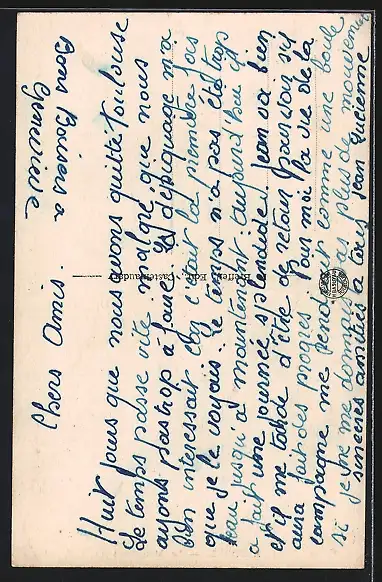 Chers Amis
Bons Baisers a
Genevieve
Huit jours que nous avons quitté Toulouse
Le temps passe vite malgré que nous
ayons pas trop à faire. Le dépiquage m'a
bien interessait car c'était la première fois
que je le voyais. Le temps n'a pas été trop
beau jusqu'à maintenant: aujourd'hui il
a fait une journée splendide. Jean va bien
et il me tarde d'être de retour pour voir s'il
aura fait des progrès. Pour moi la vie de la
campagne me rendrait comme une boule
si je ne me donnais pas plus de mouvement
sincères amitiés a tous Jean Lucienne
Edit. Castelnaudary